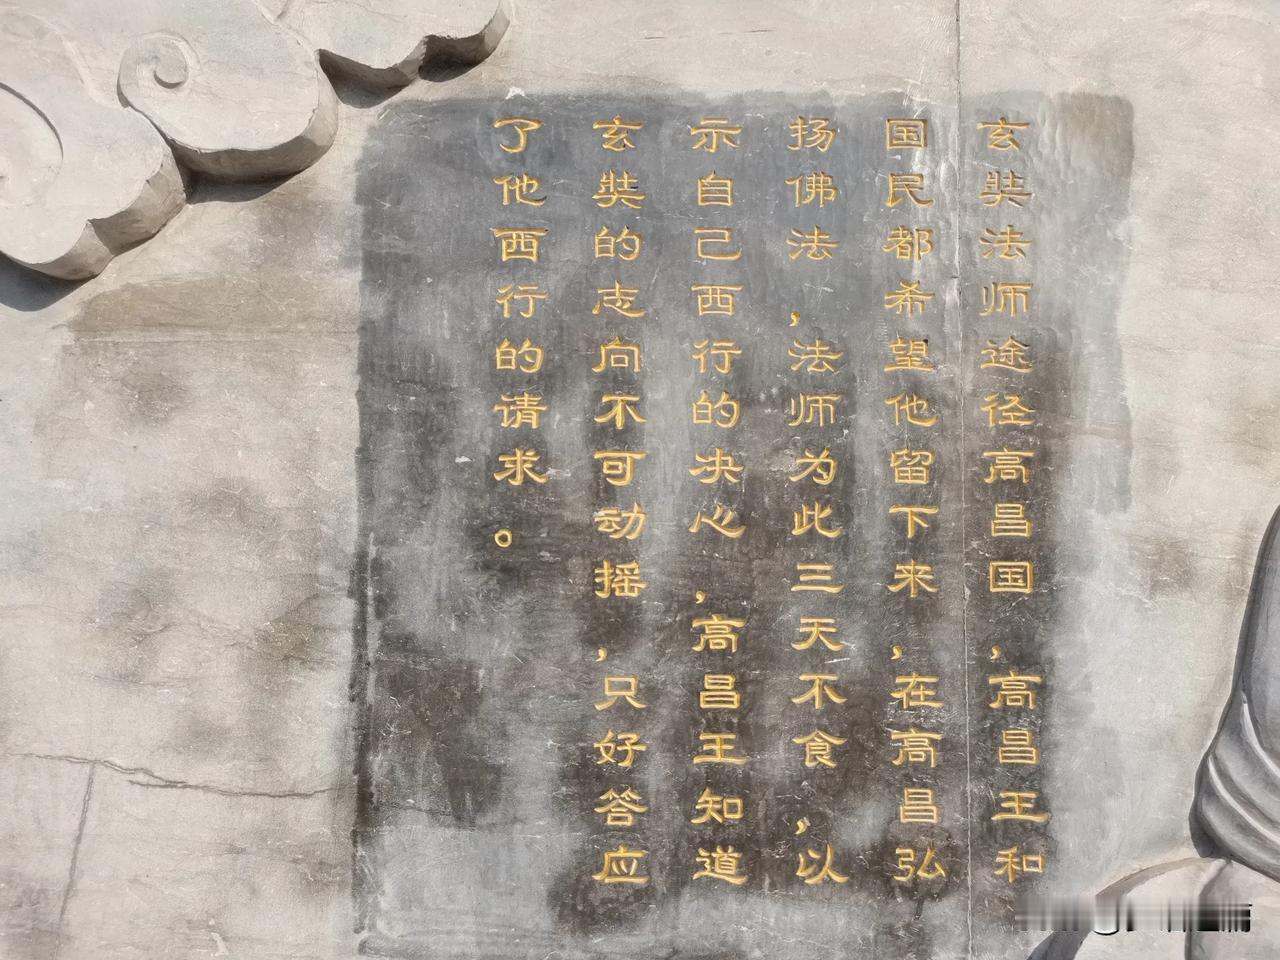 玄奘法师途径高昌国，高昌王和
国民都希望他留下来，在高昌弘
扬佛法，法师为此三天不食，以
示自己西行的决心，高昌王知道
玄奘的志向不可动摇，只好答应
了他西行的请求。